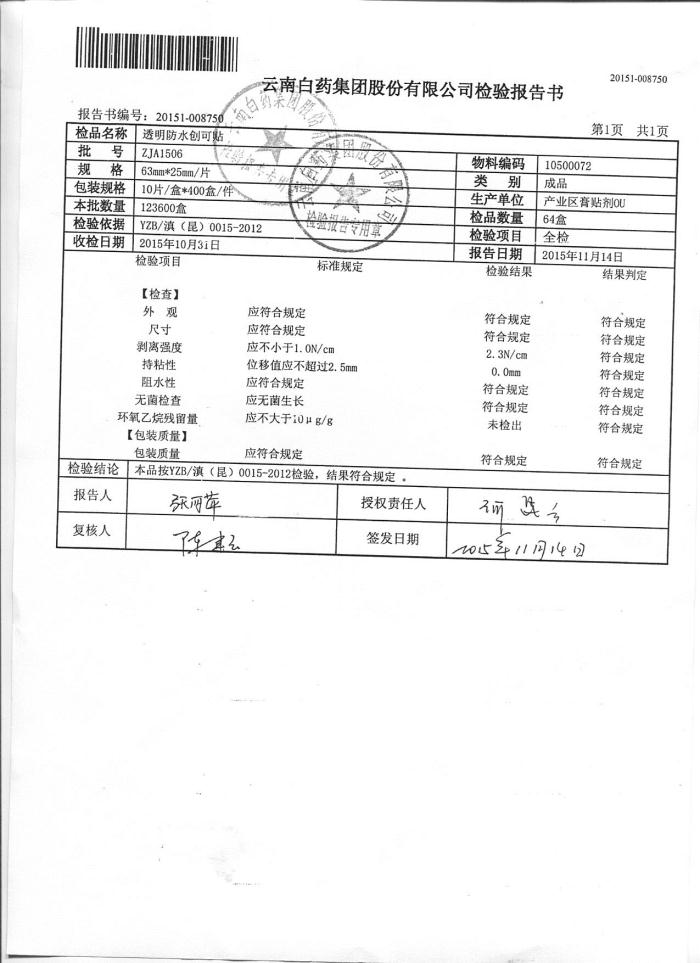 云南白药集团股份有限公司检验报告书
20151-008750
报告书编号：20151-008750
第1页 共1页
检品名称 透明防水创可贴
批 号 ZJA1506 物料编码 10500072
规 格 63mm*25mm/片 类 别 成品
包装规格 10片/盒*400盒/件 生产单位 产业区膏贴剂OU
本批数量 123600盒 检品数量 64盒
检验依据 YZB/滇（昆）0015-2012 检验项目 全检
收检日期 2015年10月31日 报告日期 2015年11月14日
检验项目 标准规定 检验结果 结果判定
【检查】
外 观 应符合规定 符合规定 符合规定
尺寸 应符合规定 符合规定 符合规定
剥离强度 应不小于1.0N/cm 2.3N/cm 符合规定
持粘性 位移值应不超过2.5mm 0.0mm 符合规定
阻水性 应符合规定 符合规定 符合规定
无菌检查 应无菌生长 符合规定 符合规定
环氧乙烷残留量 应不大于10μg/g 未检出 符合规定
【包装质量】
包装质量 应符合规定 符合规定 符合规定
检验结论 本品按YZB/滇（昆）0015-2012检验，结果符合规定 。
报告人 张丽萍 授权责任人
复核人 签发日期 2015年11月14日
云南白药集团股份有限公司
检验报告专用章
云南白药集团股份有限公司
检验报告专用章